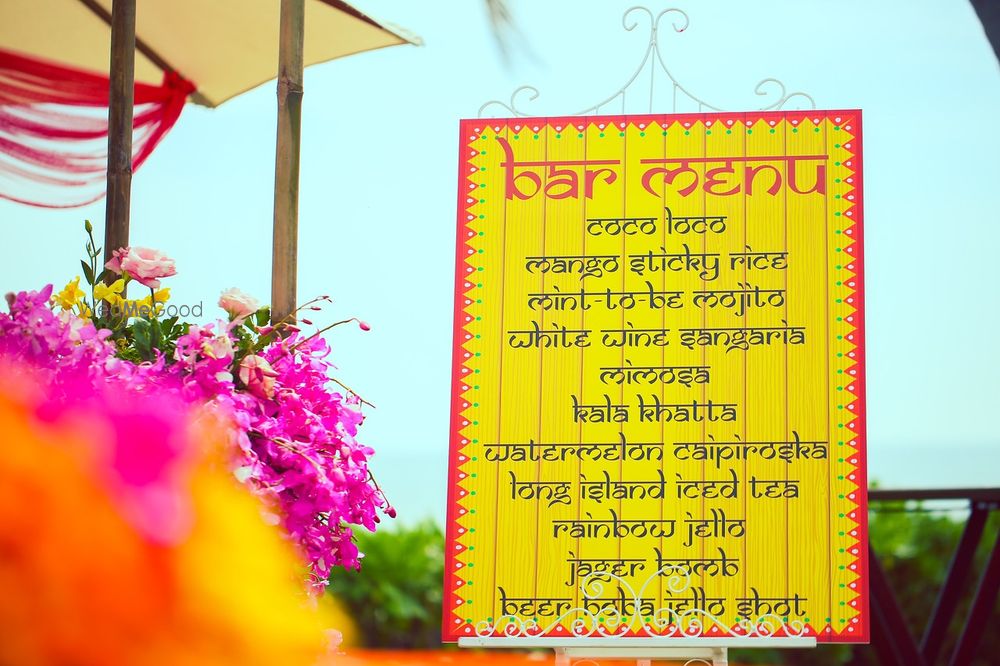 bar menu
coco loco
mango sticky rice
mint-to-be mojito
white wine sangaria
mimosa
kala khatta
watermelon caipiroska
long island iced tea
rainbow jello
jager bomb
beer baba jello shot
WedMeGood